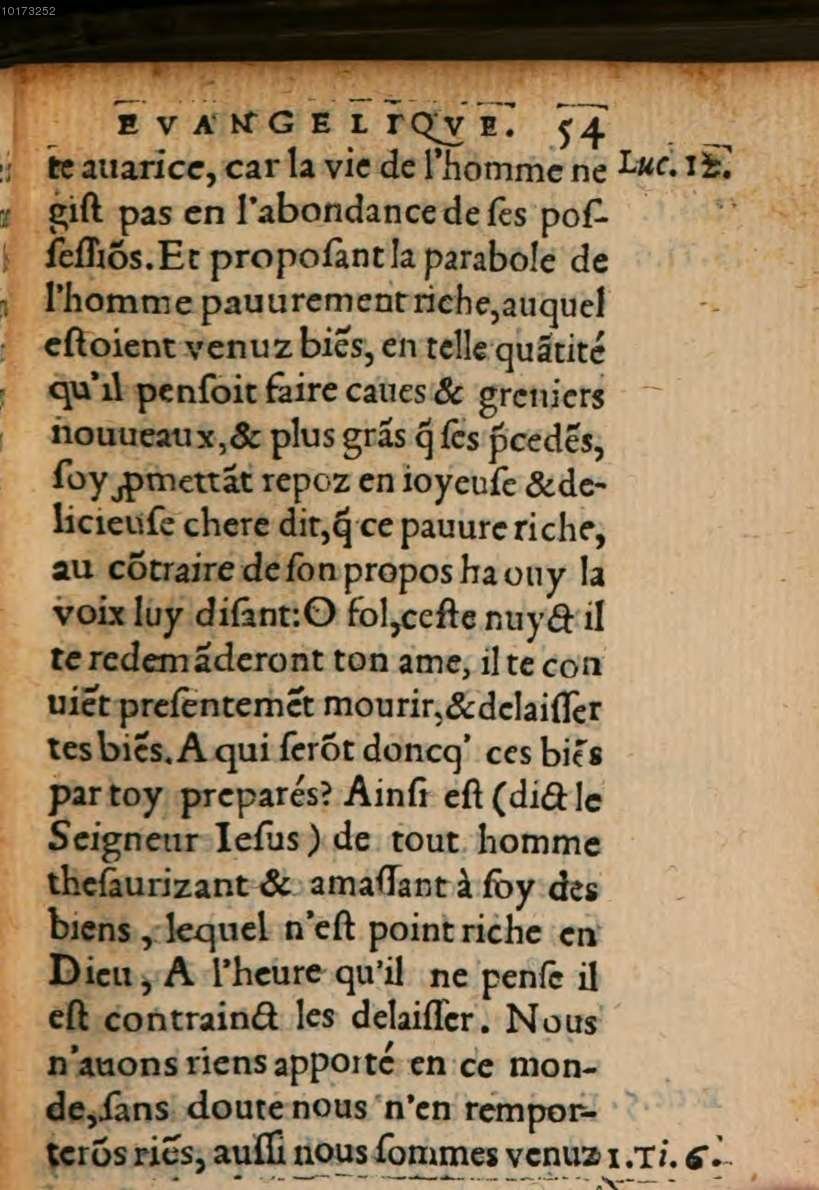 10173252
EVANGELIQVE. 54
te auarice, car la vie de l'homme ne Luc. 12.
giſt pas en l'abondance de ſes poſ-
ſeſſiõs. Et propoſant la parabole de
l'homme pauurement riche, auquel
eſtoient venuz biẽs, en telle quãtité
qu'il penſoit faire caues & greniers
nouueaux, & plus grãs q̃ ſes p̃cedẽs,
ſoy ꝓmettãt repoz en ioyeuſe & de-
licieuſe chere dit, q̃ ce pauure riche,
au cõtraire de ſon propos ha ouy la
voix luy diſant: O fol, ceſte nuyct il
te redemãderont ton ame, il te con
uiẽt preſentemẽt mourir, & delaiſſer
tes biẽs. A qui ſerõt doncq' ces biẽs
par toy preparés? Ainſi eſt (dict le
Seigneur Ieſus) de tout homme
theſaurizant & amaſſant à ſoy des
biens, lequel n'eſt point riche en
Dieu, A l'heure qu'il ne penſe il
eſt contrainct les delaiſſer. Nous
n'auons riens apporté en ce mon-
de, ſans doute nous n'en rempor-
terõs riẽs, auſſi nous ſommes venuz 1. Ti. 6.